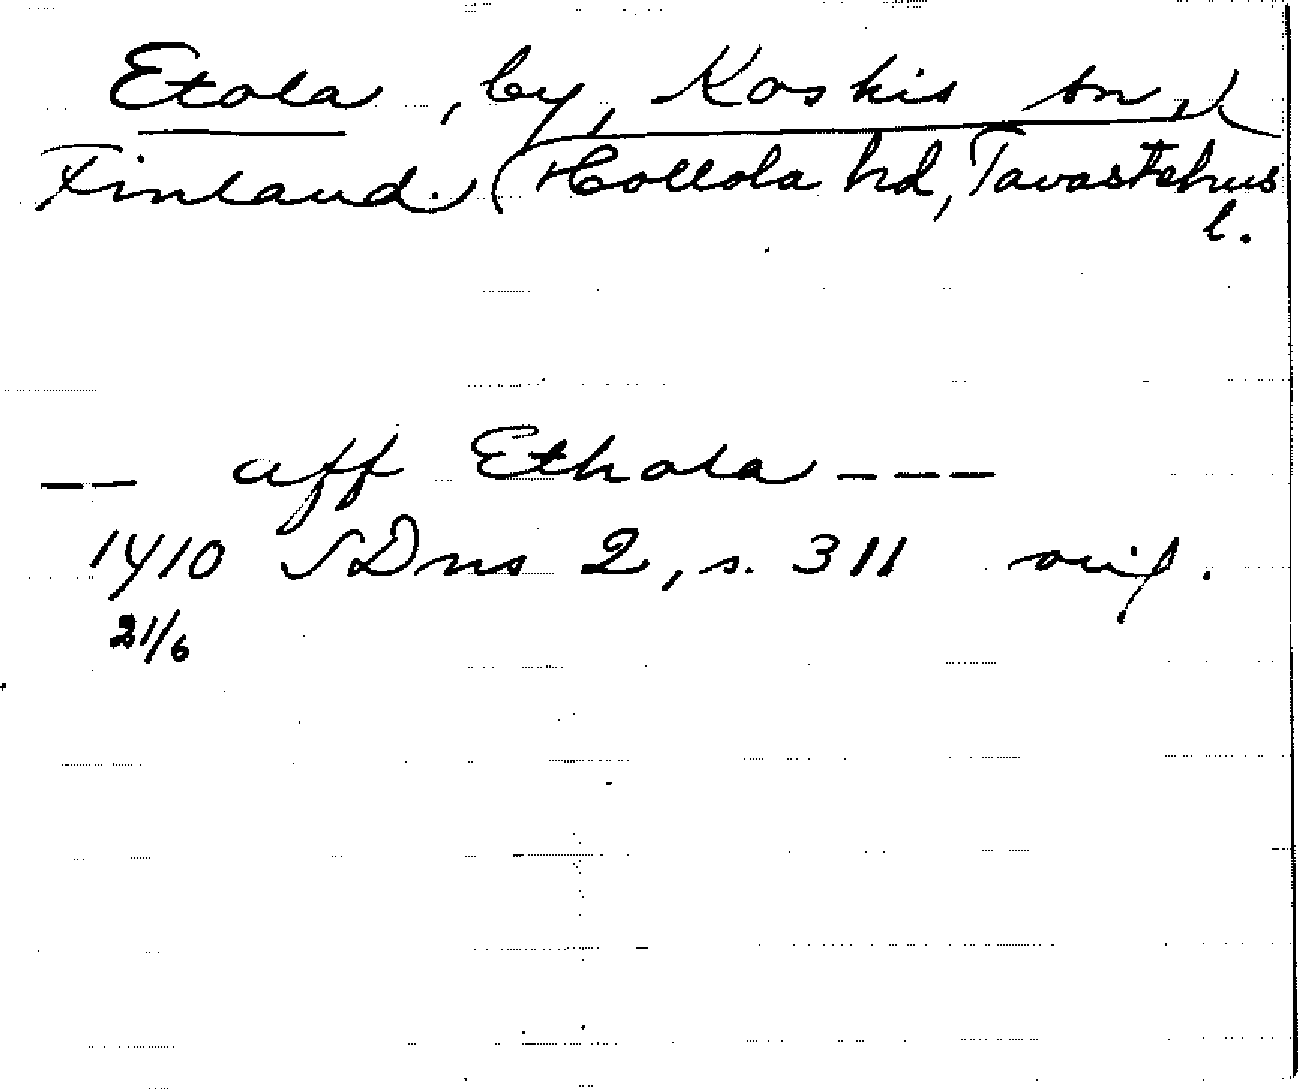 Etola, by, Koskis sn,
Finland. (Hollola hd, Tavastehus
l.
-- aff Ethola ---
1410 SDns 2, s. 311 orig.
21/6